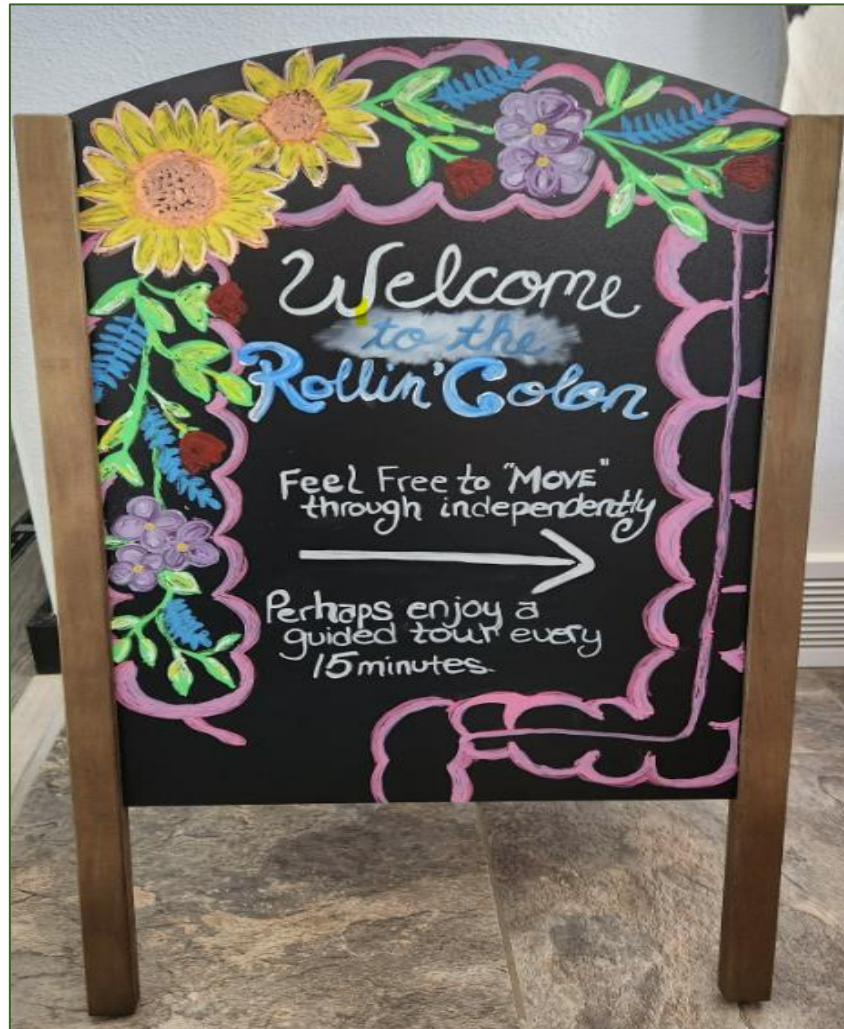 Welcome
to the
Rollin' Colon
Feel Free to "MOVE"
through independently
Perhaps enjoy a
guided tour every
15 minutes.